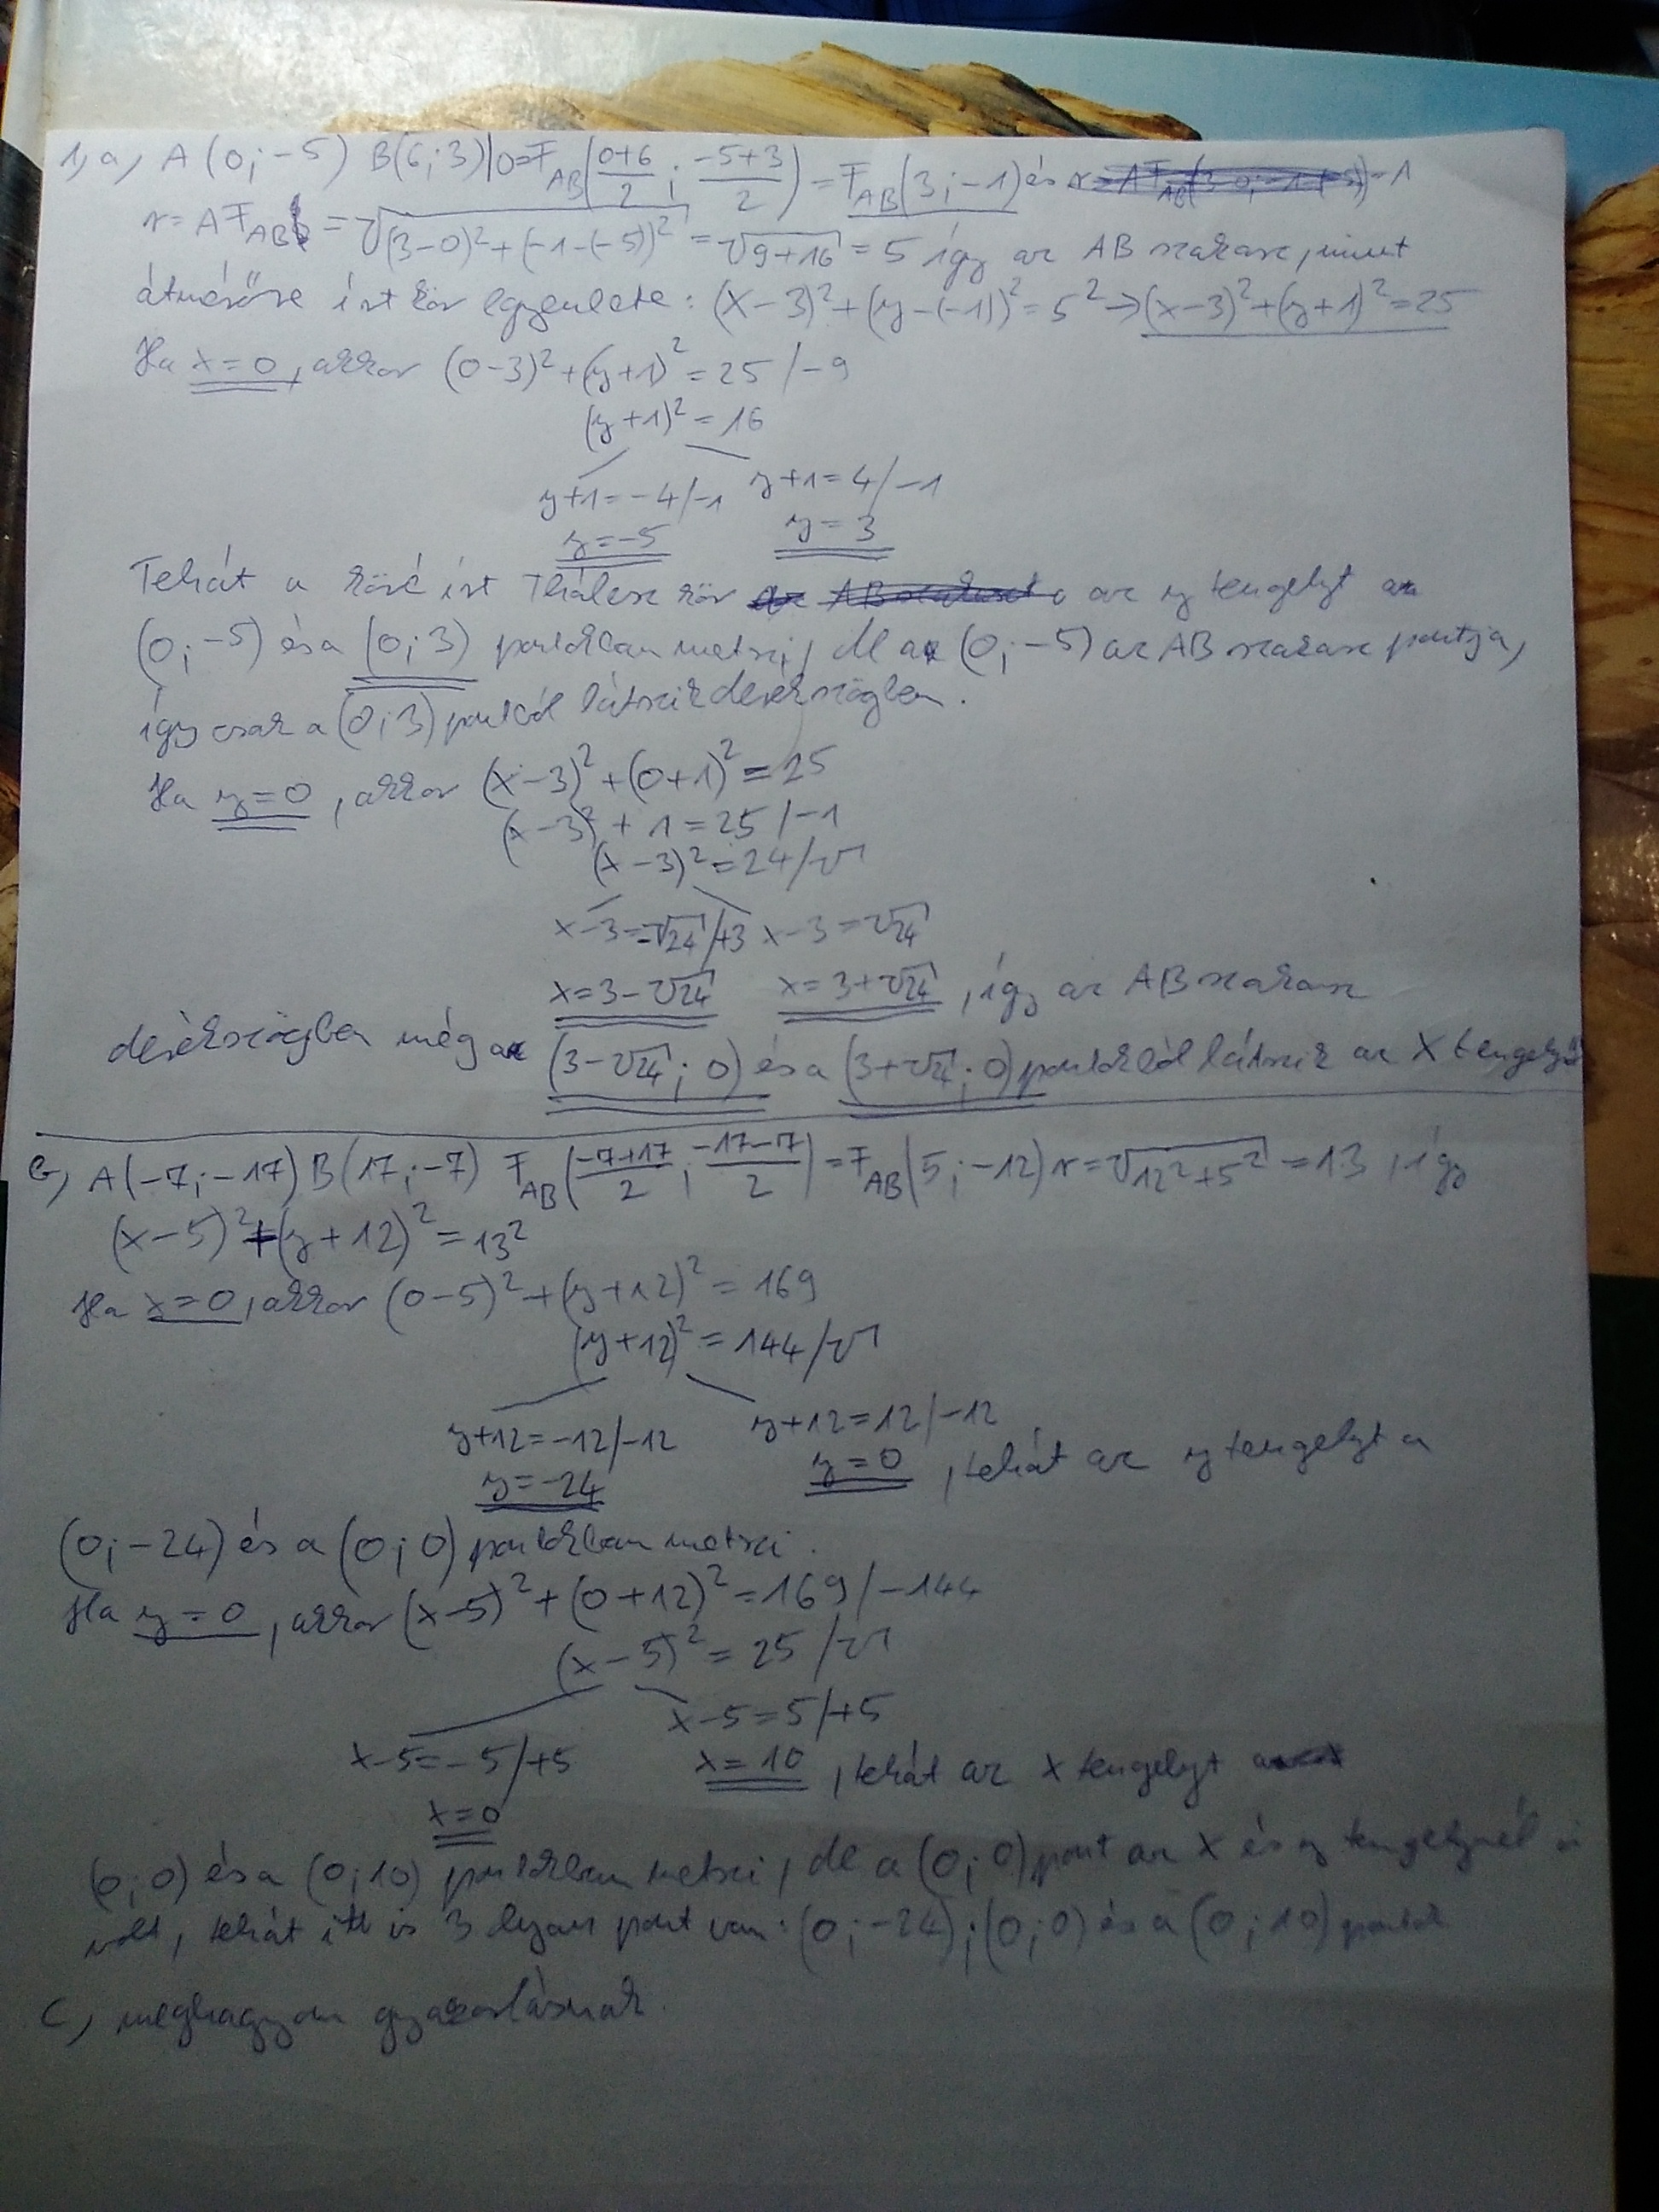 1, a, A (0; -5) B(6; 3) O=F_AB((0+6)/2; (-5+3)/2) = F_AB(3; -1) és
r = AF_AB = √((3-0)²+(-1-(-5))²) = √(9+16) = 5 így az AB szakasz, mint
átmérőre írt kör egyenlete: (x-3)²+(y-(-1))²=5² → (x-3)²+(y+1)²=25
Ha x=0, akkor (0-3)²+(y+1)²=25 /-9
(y+1)²=16
y+1=-4/-1 y+1=4/-1
y=-5 y=3
Tehát a köré írt Thálesz kör az y tengelyt a
(0; -5) és a (0; 3) pontokban metszi, de a (0; -5) az AB szakasz pontja,
így csak a (0; 3) pontból látszik derékszögben.
Ha y=0, akkor (x-3)²+(0+1)²=25
(x-3)²+1=25/-1
(x-3)²=24/√
x-3=-√24/+3 x-3=√24
x=3-√24 x=3+√24, így az AB szakasz
derékszögben még a (3-√24; 0) és a (3+√24; 0) pontokból látszik az x tengelyről
b, A(-7; -17) B(17; -7) F_AB((-7+17)/2; (-17-7)/2) = F_AB(5; -12) r=√(12²+5²)=13, így
(x-5)²+(y+12)²=13²
Ha x=0, akkor (0-5)²+(y+12)²=169
(y+12)²=144/√
y+12=-12/-12 y+12=12/-12
y=-24 y=0, tehát az y tengelyt a
(0; -24) és a (0; 0) pontokban metszi.
Ha y=0, akkor (x-5)²+(0+12)²=169/-144
(x-5)²=25/√
x-5=5/+5
x-5=-5/+5 x=10, tehát az x tengelyt a
x=0
(0; 0) és a (0; 10) pontokban metszi, de a (0; 0) pont az x és y tengelynél is
volt, tehát itt is 3 olyan pont van: (0; -24); (0; 0) és a (0; 10) pontok
C, meghagyom gyakorlásnak.